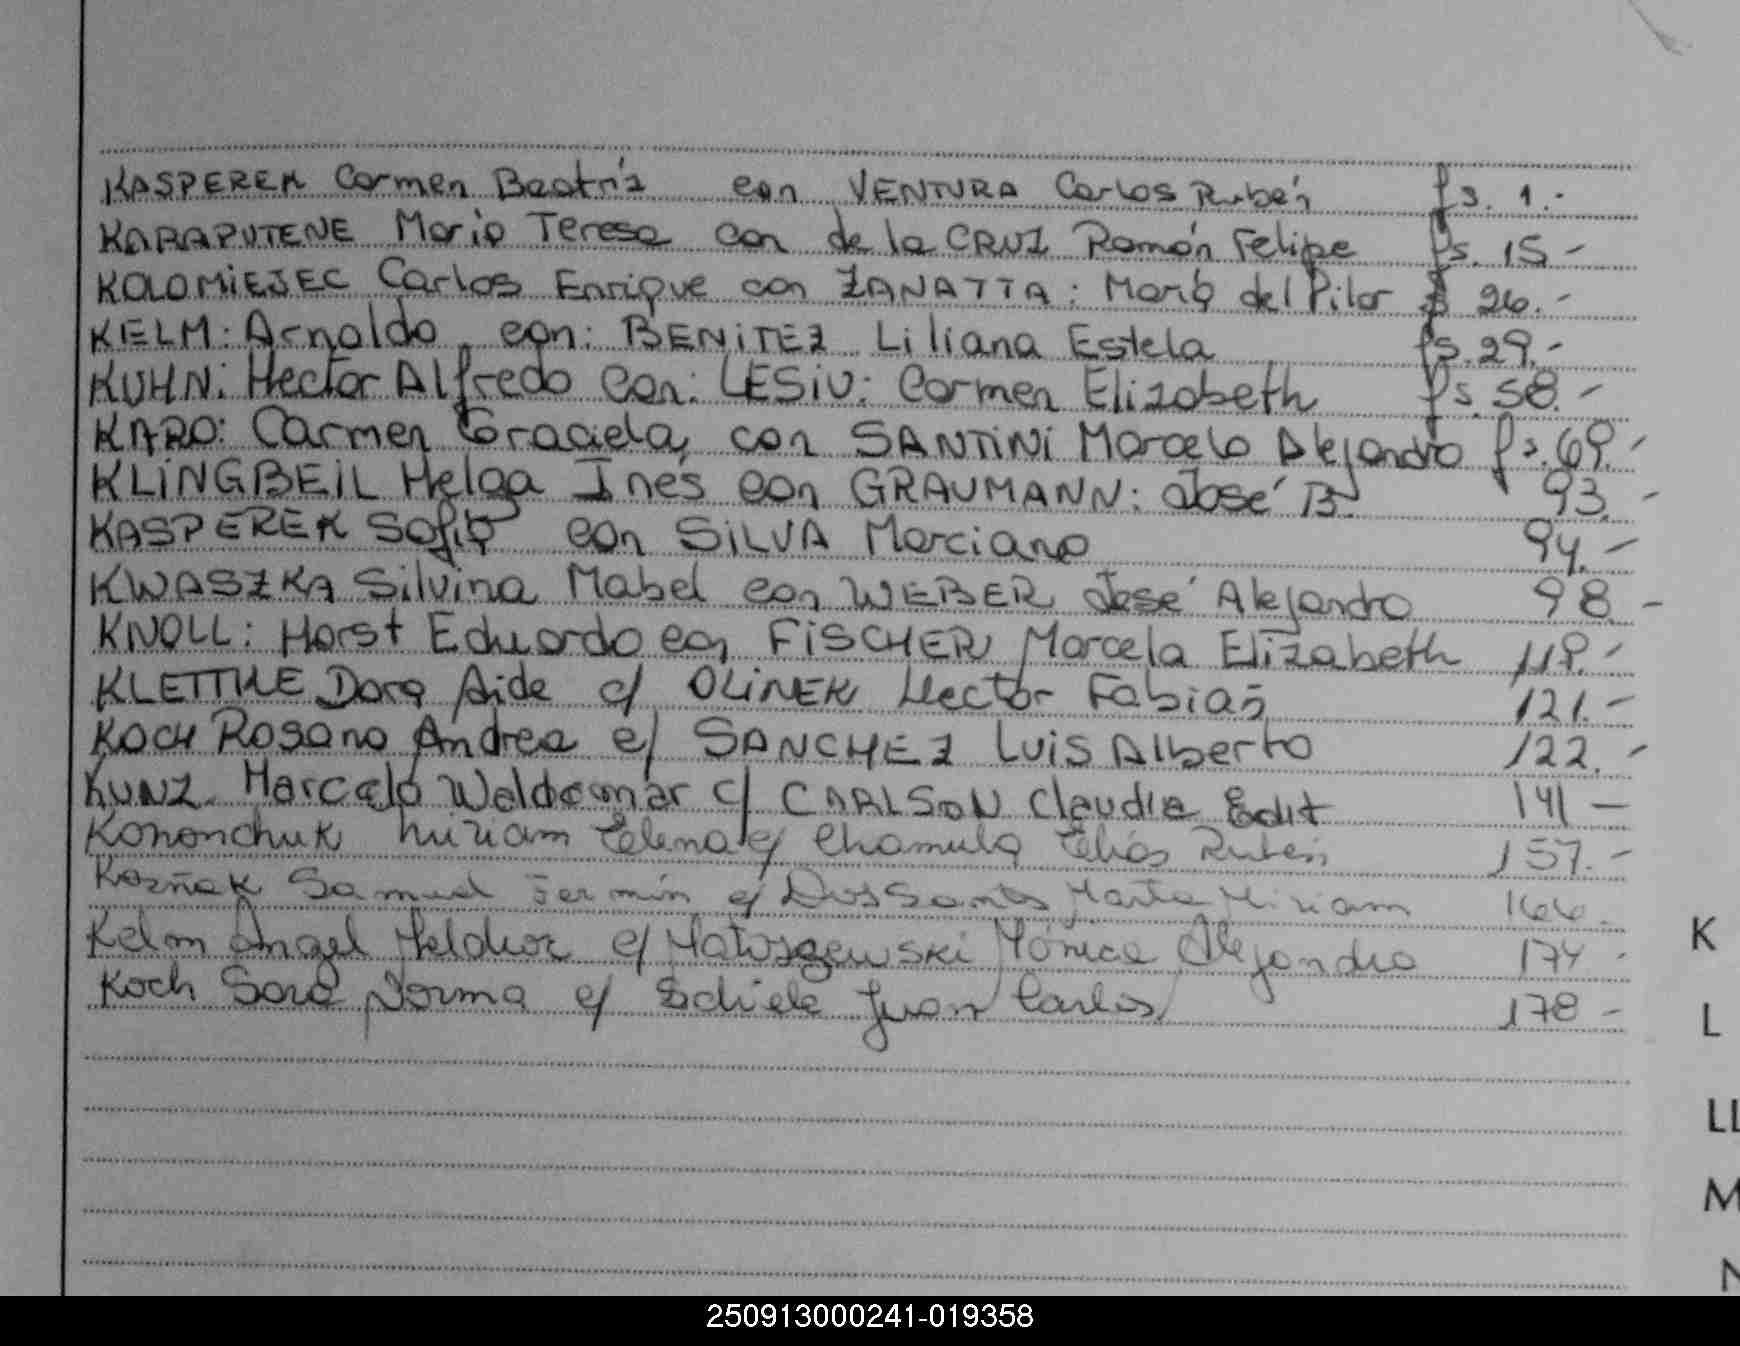 KASPEREK Carmen Beatriz con VENTURA Carlos Rubén fs. 1.-
KARAPUTENE Maria Teresa con de la CRUZ Ramón Felipe fs. 15-
KOLOMIEJEC Carlos Enrique con ZANATTA: María del Pilar fs 26.-
KELM: Arnoldo con: BENITEZ Liliana Estela fs.29.-
KUHN: Hector Alfredo con: LESIU: Carmen Elizabeth fs.58.-
KARO: Carmen Graciela, con SANTINI Marcelo Alejandro fs.69.-
KLINGBEIL Helga Inés con GRAUMANN: José B. 93.-
KASPEREK Sofia con SILVA Marciano 94.-
KWASZKA Silvina Mabel con WEBER José Alejandro 98.-
KNOLL: Horst Eduardo con FISCHER Marcela Elizabeth 119.-
KLETTKE Dora Aide c/ OLINEK Hector Fabian 121.-
KOCH Rosana Andrea c/ SANCHEZ Luis Alberto 122.-
KUNZ. Marcelo Waldemar c/ CARLSON Claudia Edit 141-
Kononchuk Miriam Elena c/ Chamula Elías Rubén 157.-
Kozñak Samuel Fermín c/ Dos Santos Marta Miriam 166.
Kelm Angel Melchor c/ Matuszewski Mónica Alejandra 174.
Koch Sara Norma c/ Schiele Juan Carlos 178-
K
L
LL
M
N
250913000241-019358